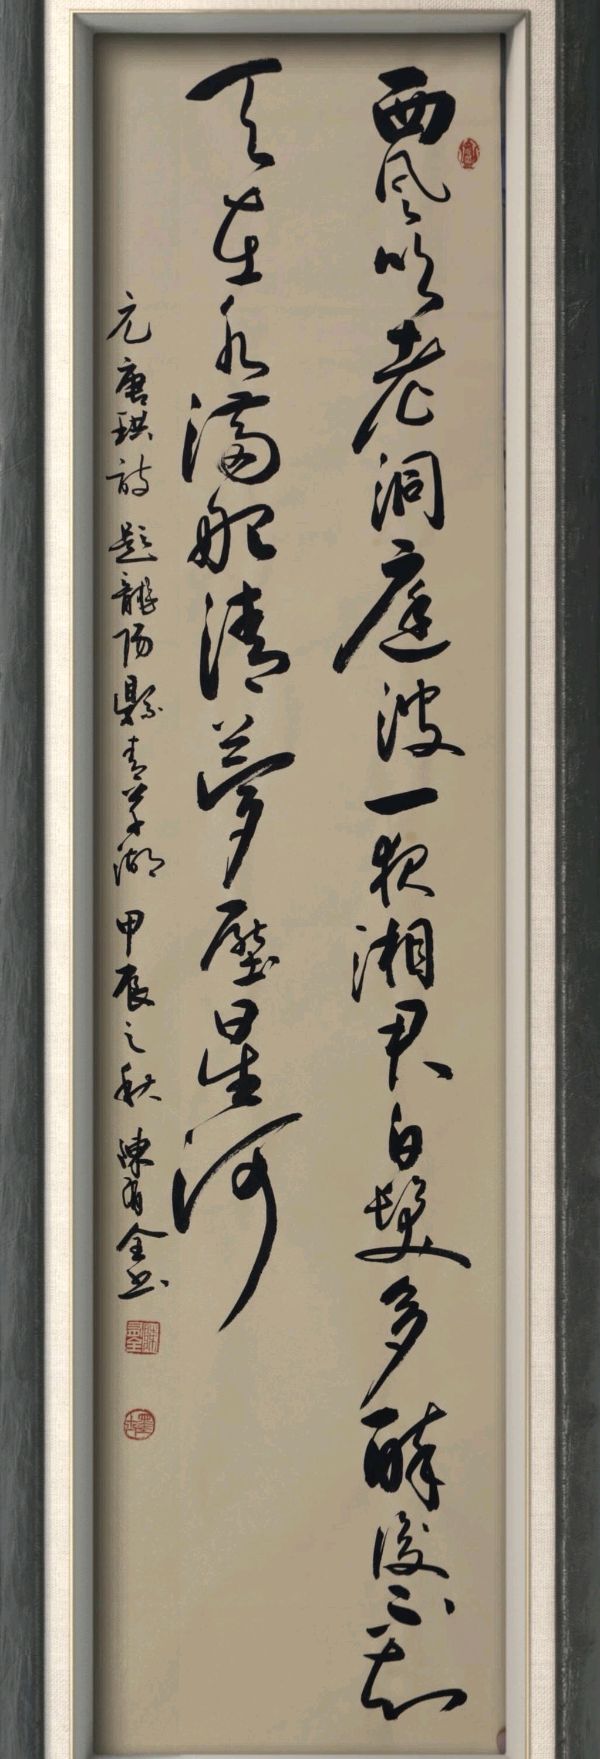 西風吹老洞庭波一夜湘君白髮多醉後不知
天在水滿船清夢壓星河
元唐珙詩 題龍陽縣青草湖 甲辰之秋 陳有全書